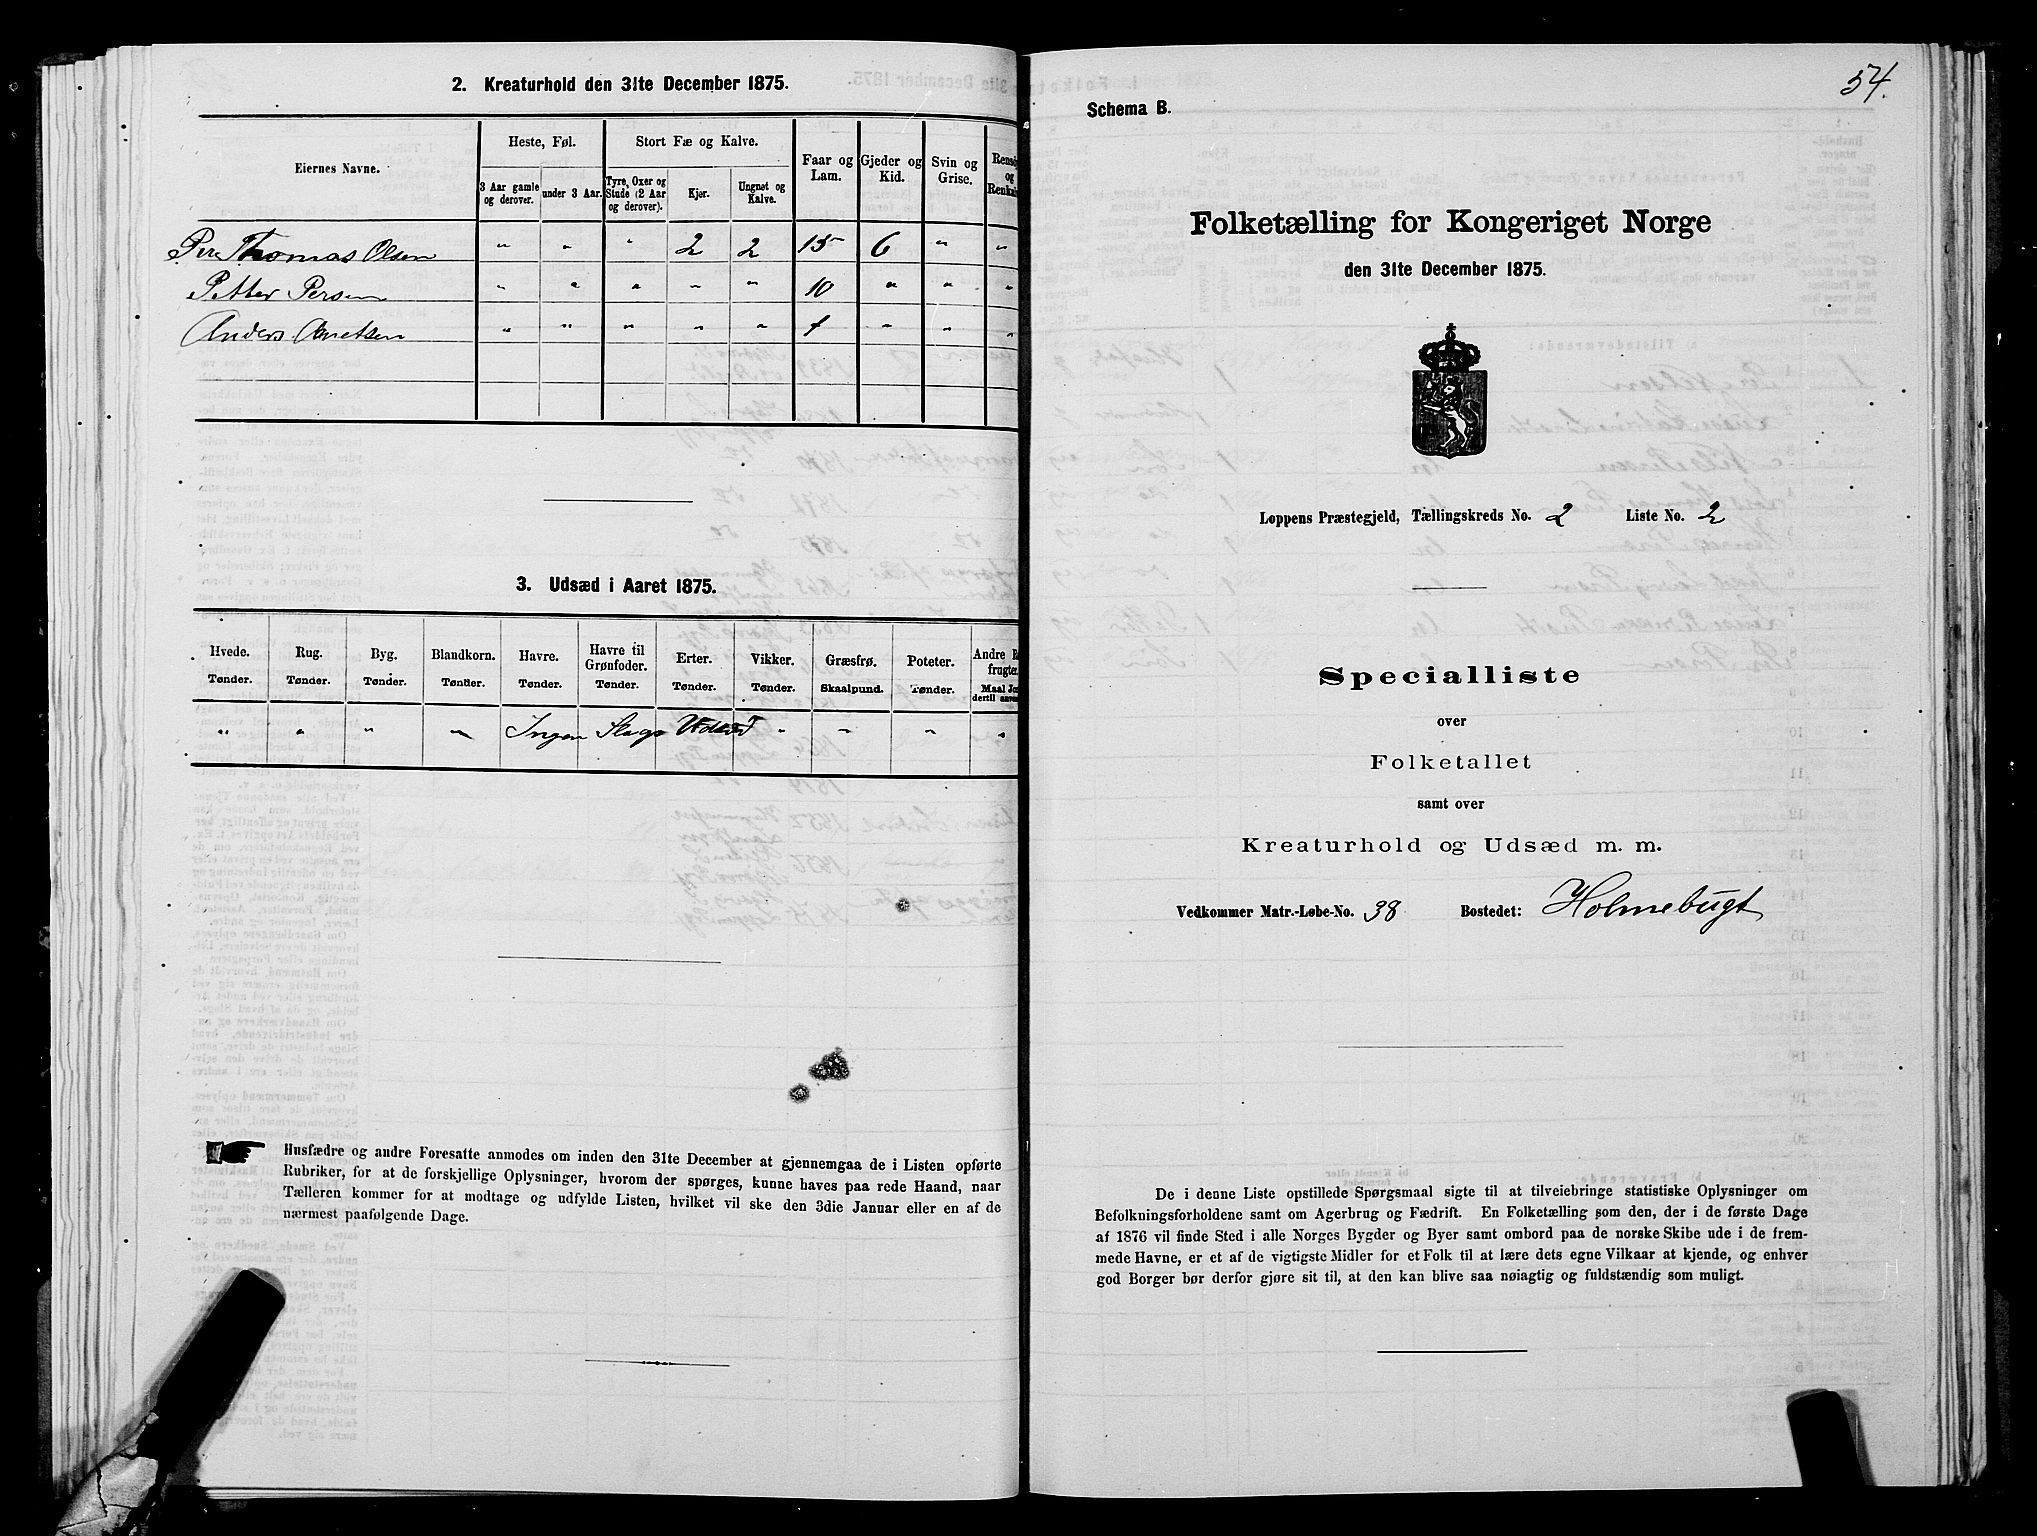 2. Kreaturhold den 31te December 1875.
Eiernes Navne.
Heste, Føl.
Stort Fæ og Kalve.
Faar og Lam.
Gjeder og Kid.
Svin og Grise.
og
3 Aar gamle og derover.
under 3 Aar.
Tyre, Oxer og Stude (2 Aar og derover).
Kjør.
Ungnøt og Kalve.
Per Thomas Olsen " " " 2 2 15 6 " "
Petter Persen " " " " " 10 " " "
Anders " " " " " 1 " " "
3. Udsæd i Aaret 1875.
Hvede. Rug. Byg. Blandkorn. Havre. Havre til Grønfoder. Erter. Vikker. Græsfrø. Poteter. Andre
Tønder. Tønder. Tønder. Tønder. Tønder. Tønder. Tønder. Tønder. Skaalpund. Tønder. Maal
" " " " Ingen Slags Udsæd " " " "
Husfædre og andre Foresatte anmodes om inden den 31te December at gjennemgaa de i Listen opførte
Rubriker, for at de forskjellige Oplysninger, hvorom der spørges, kunne haves paa rede Haand, naar
Tælleren kommer for at modtage og udfylde Listen, hvilket vil ske den 3die Januar eller en af de
nærmest paafølgende Dage.
54.
Schema B.
Folketælling for Kongeriget Norge
den 31te December 1875.
Loppens Præstegjeld, Tællingskreds No. 2 Liste No. 2
Specialliste
over
Folketallet
samt over
Kreaturhold og Udsæd m. m.
Vedkommer Matr.-Løbe-No. 38 Bostedet: Holmebugt
De i denne Liste opstillede Spørgsmaal sigte til at tilveiebringe statistiske Oplysninger om
Befolkningsforholdene samt om Agerbrug og Fædrift. En Folketælling som den, der i de første Dage
af 1876 vil finde Sted i alle Norges Bygder og Byer samt ombord paa de norske Skibe ude i de frem-
mede Havne, er et af de vigtigste Midler for et Folk til at lære dets egne Vilkaar at kjende, og enhver
god Borger bør derfor gjøre sit til, at den kan blive saa nøiagtig og fuldstændig som muligt.